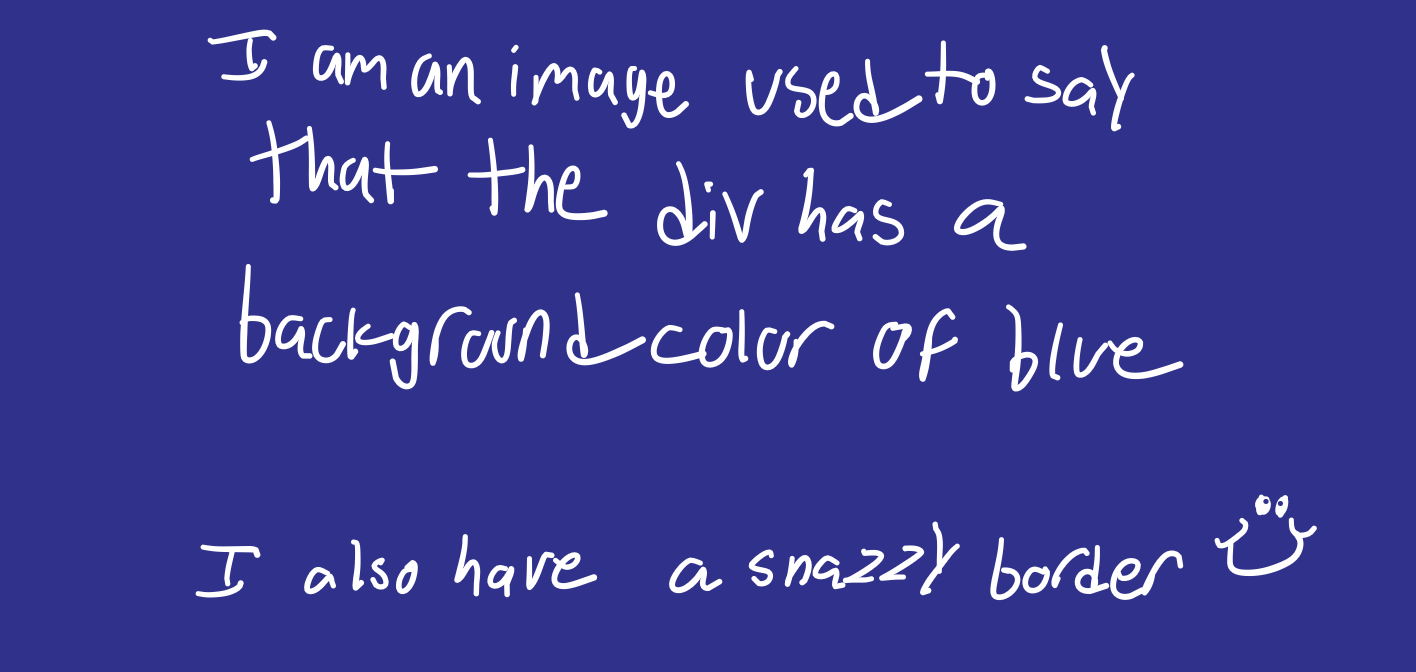 I am an image used to say
that the div has a
background color of blue
I also have a snazzy border